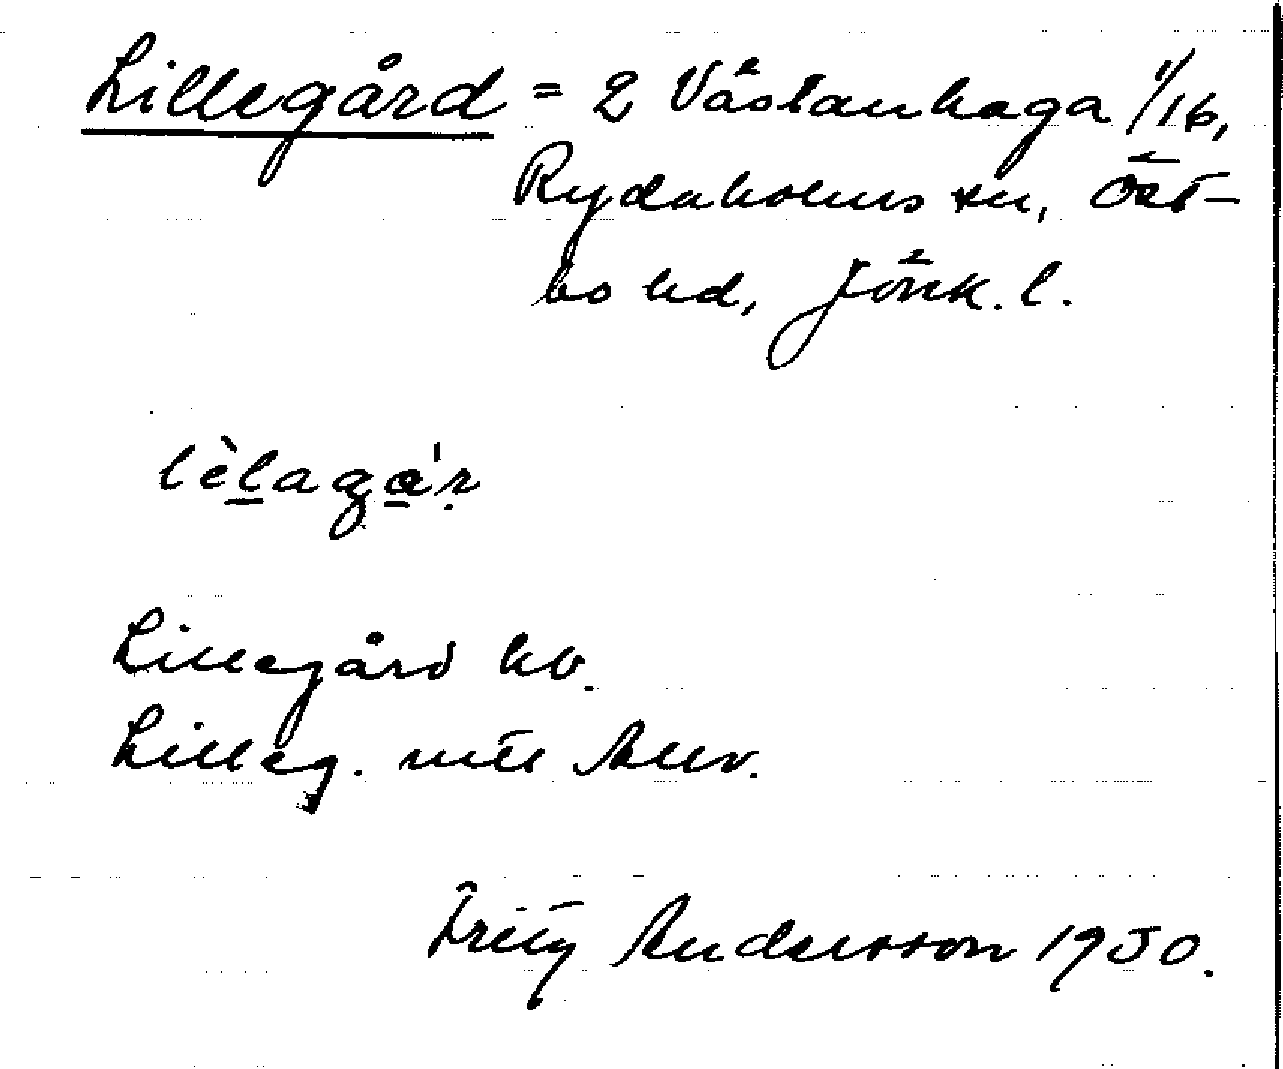 Lillegård = 2 Västanhaga 1/16,
Rydaholms sn, Öst-
bo hd, Jönk. l.
lèlagá'r
Lillegård kb.
Lilleg. mtl
Fritz Andersson 1950.